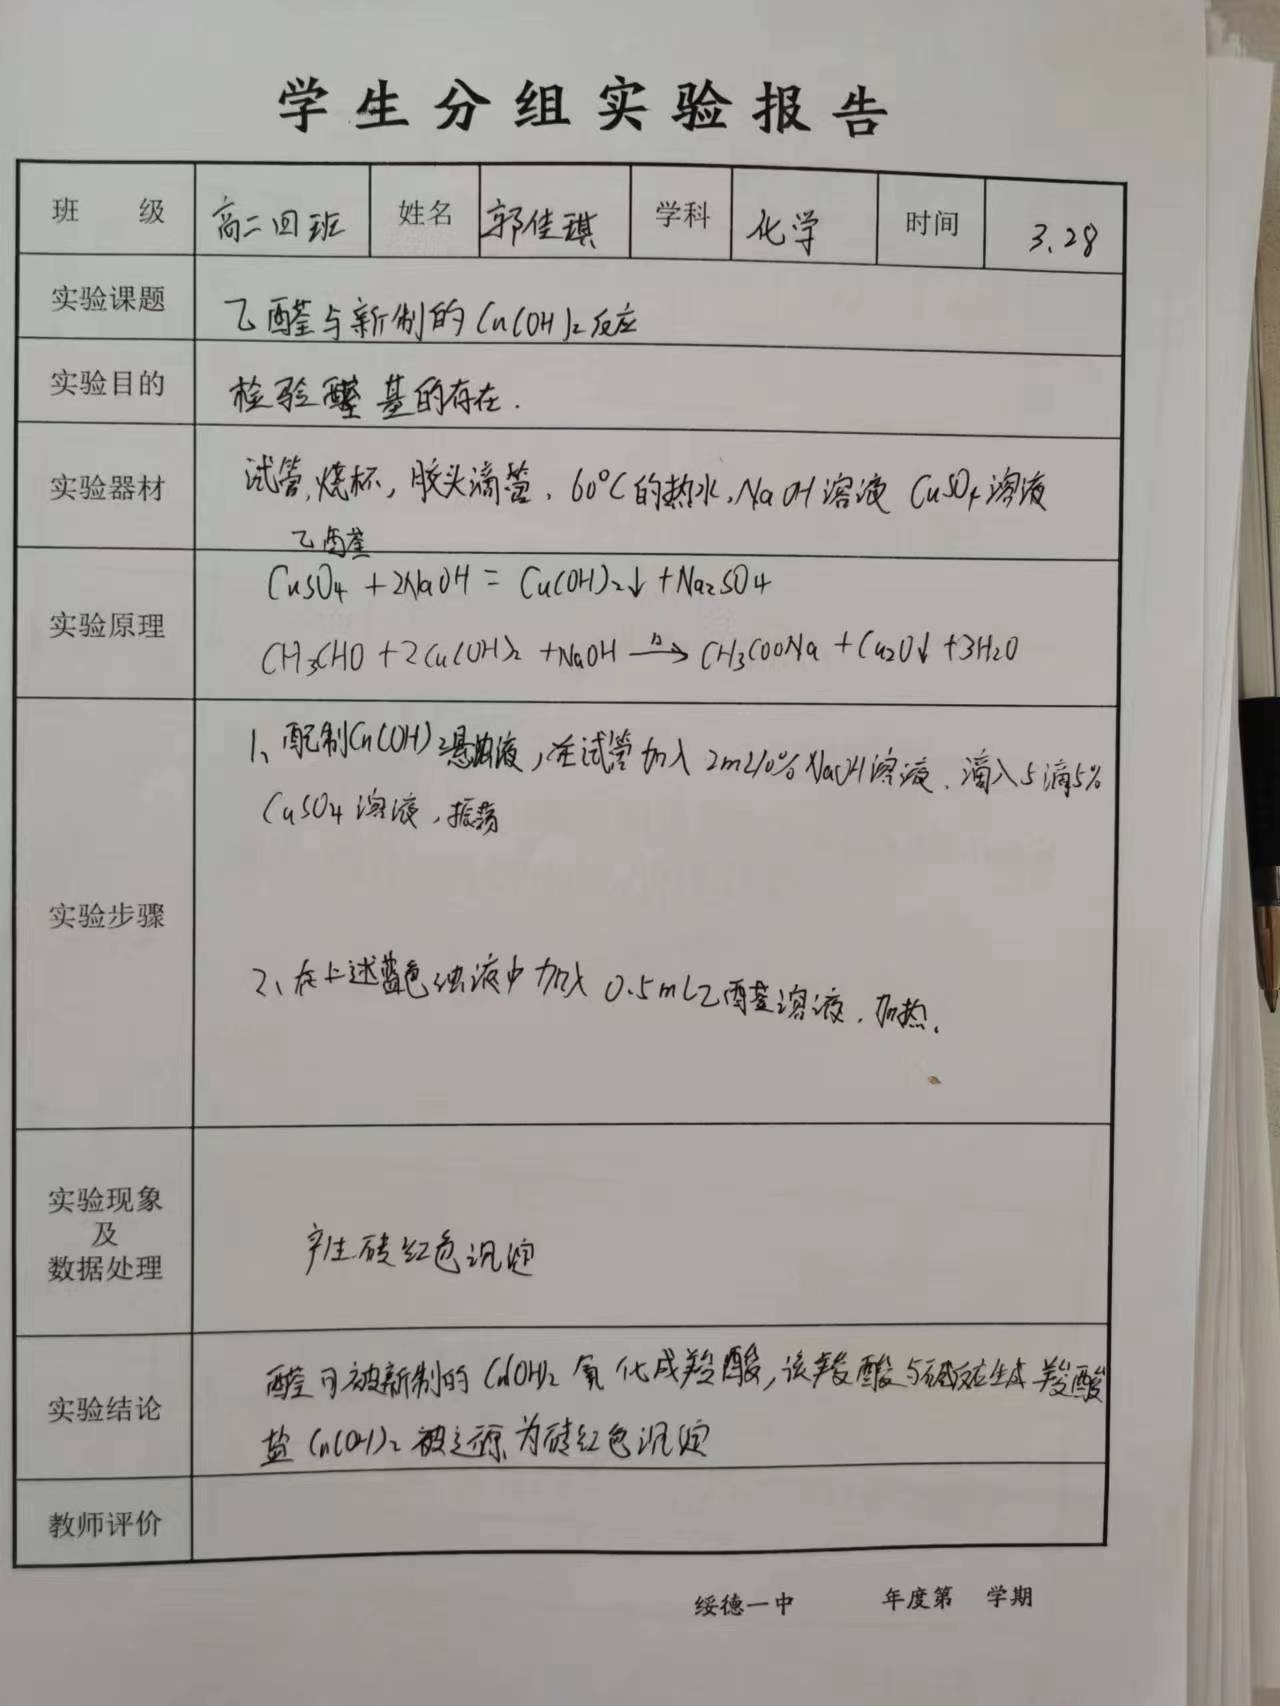 学生分组实验报告
班 级 高二四班 姓名 郭佳琪 学科 化学 时间 3.28
实验课题 乙醛与新制的Cu(OH)₂反应
实验目的 检验醛基的存在.
实验器材 试管,烧杯,胶头滴管、60℃的热水,NaOH溶液 CuSO₄溶液
乙醛
实验原理 CuSO₄+2NaOH=Cu(OH)₂↓+Na₂SO₄
CH₃CHO+2Cu(OH)₂+NaOH —△→ CH₃COONa+Cu₂O↓+3H₂O
实验步骤 1、配制Cu(OH)₂悬浊液,在试管加入2mL10%NaOH溶液、滴入5滴5%
CuSO₄溶液,振荡
2、在上述蓝色浊液中加入0.5mL乙醛溶液、加热.
实验现象
及
数据处理
产生砖红色沉淀
实验结论 醛可被新制的Cu(OH)₂氧化成羧酸,该羧酸与碱反应生成羧酸
盐 Cu(OH)₂被还原为砖红色沉淀
教师评价
绥德一中 年度第 学期